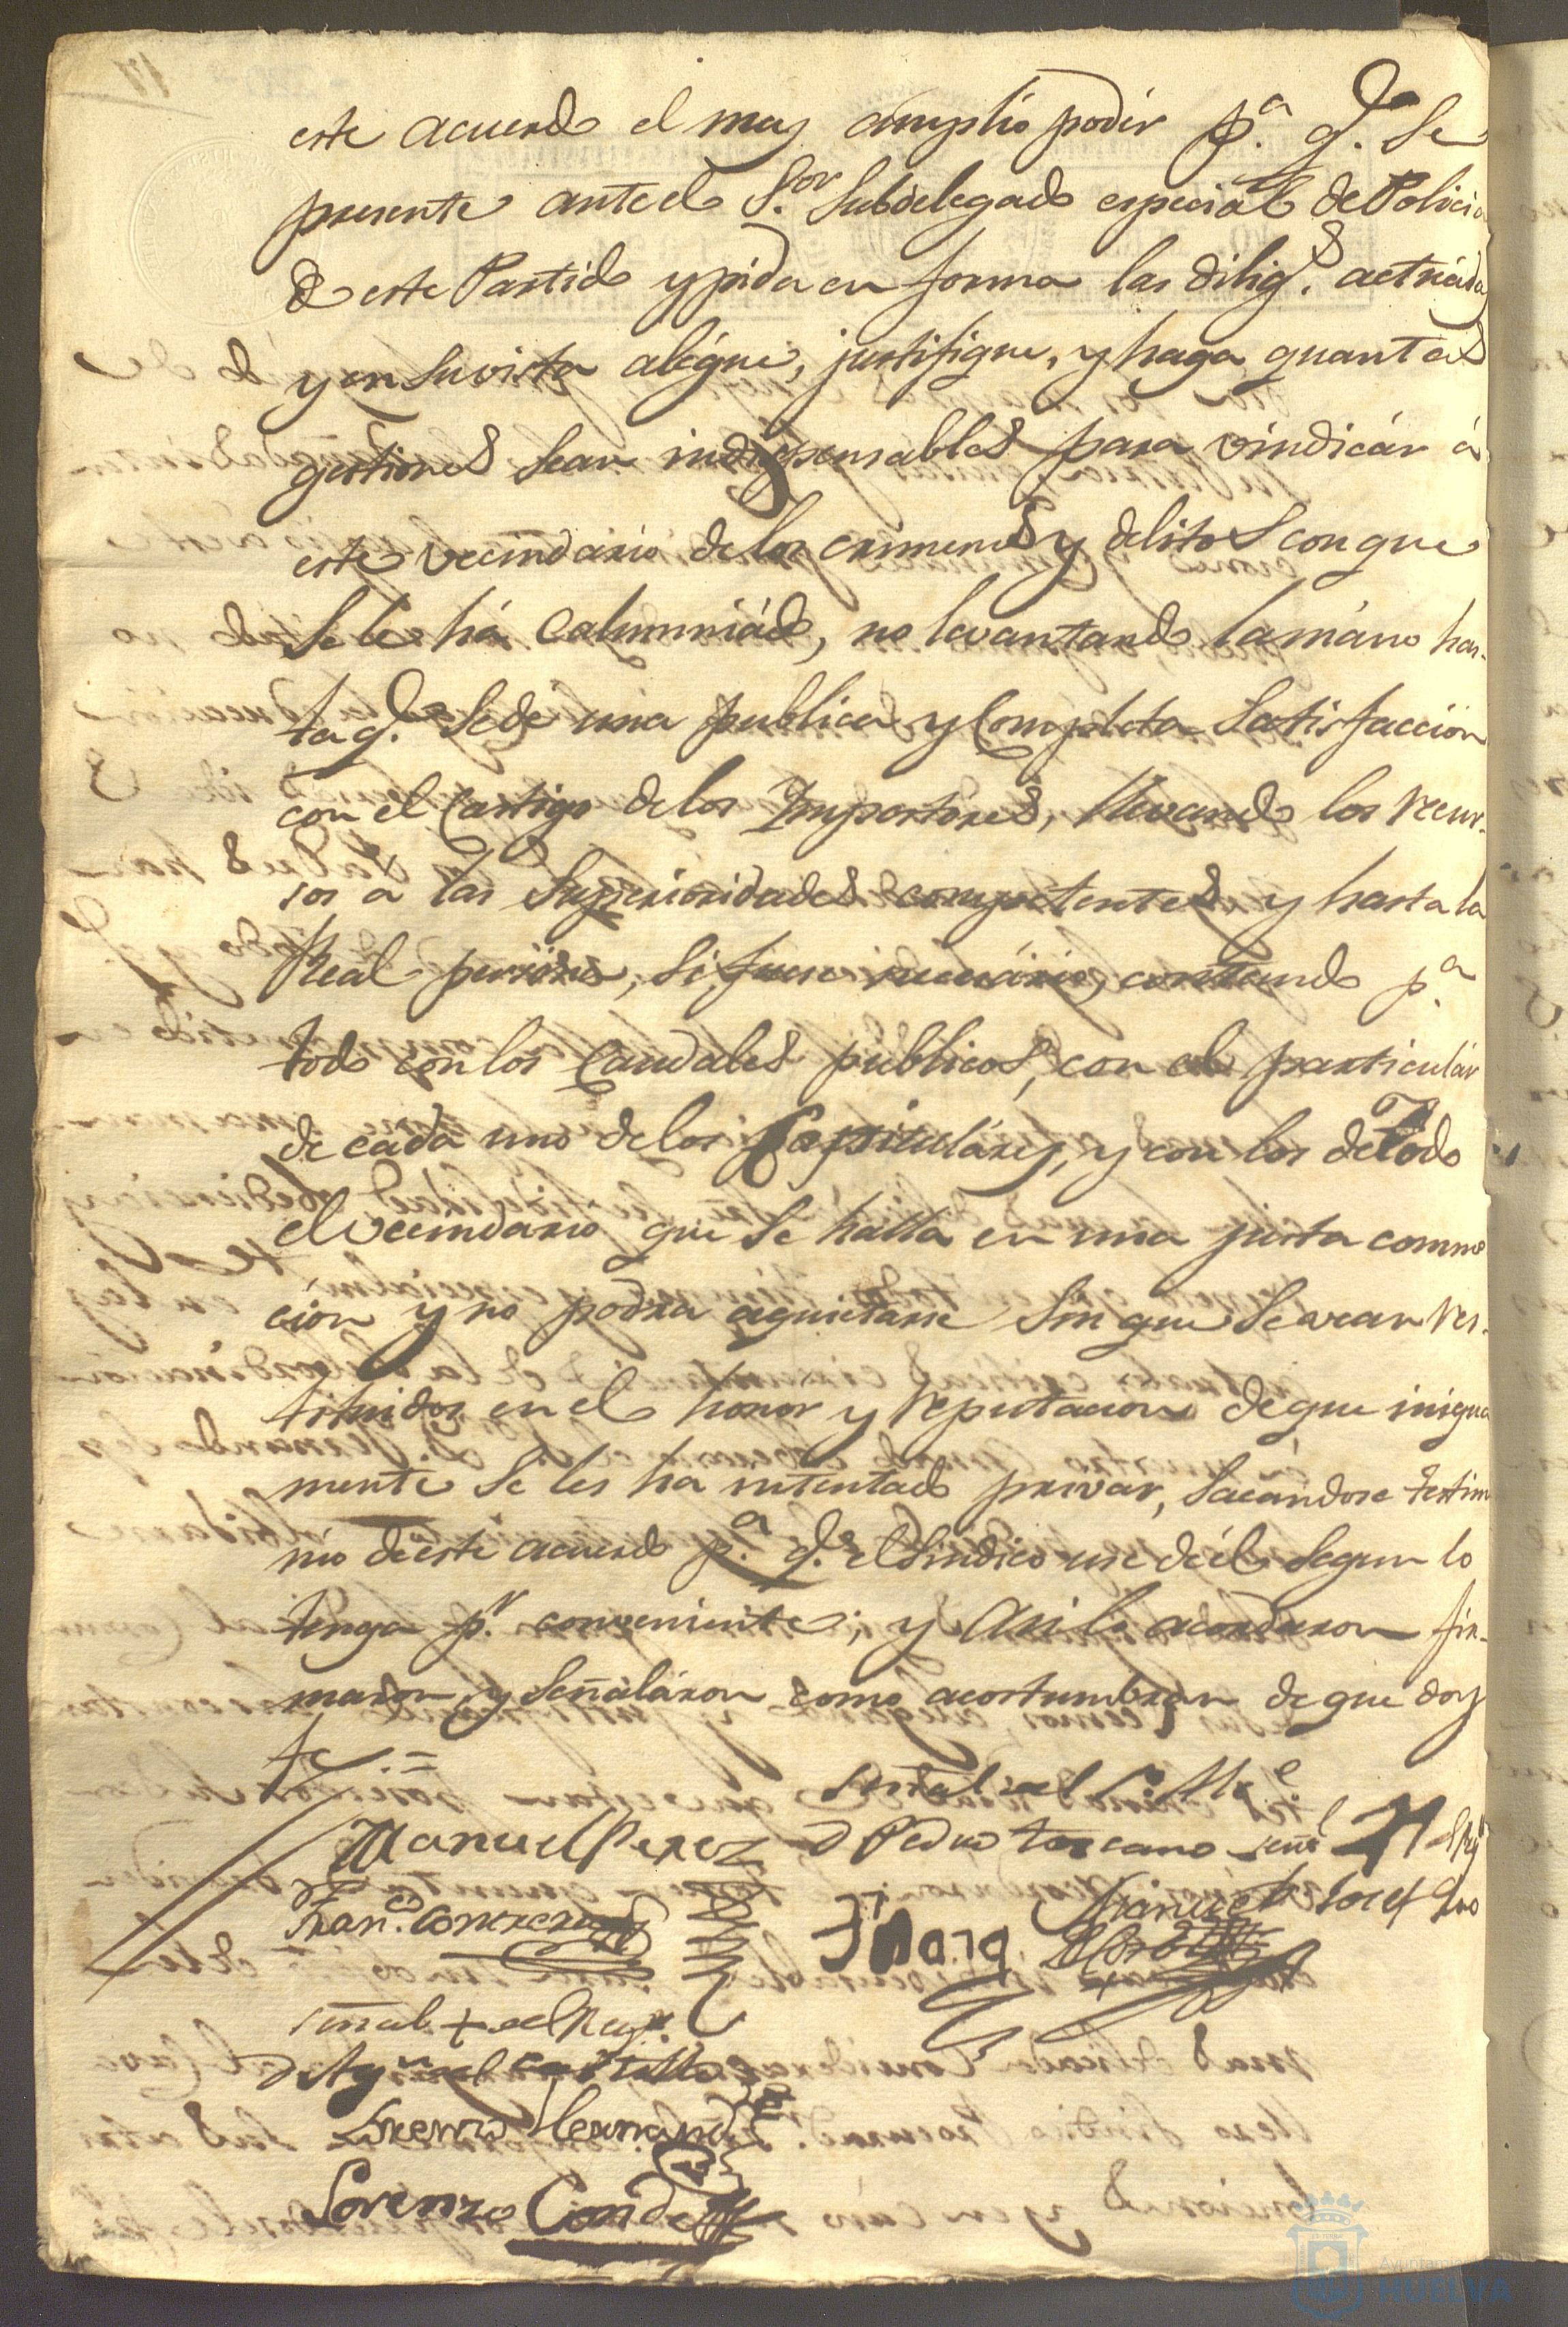 este acuerdo el mas amplio podér p.ª q.e se
presente ante el S.or Subdelegado especial de Policia
de este Partido y pida en forma las dilig.s actuadas
y en su vista alégue, justifique, y haga quantas
gestiones sean indispensables para vindicár á
este vecindario de los crimenes y delitos con que
se le há calumniádo, no levantando la máno has-
ta q.e se de una publica y completa satisfaccion
con el castigo de los Impostóres, llevando los recur-
sos a las Superioridades competentes y hasta la
Real persóna, si fuere necesário, contando p.ª
todo con los Caudales públicos, con el particulár
de cada uno de los Capituláres, y con los de todo
el vecindario que se halla en una justa conmo
cion y no podra aquietarse sin que se vean res-
tituidos en el honor y reputacion de que inigua
mente se les ha intentado privar, sacandose testimo
nio de este acuerdo p.ª q.e el Sindico use de él segun lo
tenga p.r conveniente; y asi lo acordaron fir-
maron, y señaláron como acostumbran de que doy
fe. =
Manuel Perez D Pedro toscano señ.l
Fran.co Contreras
Manuel Josef
señal + del Rex.r
D Ag.n del Castillo
Lorenzo Hernand.z
Lorenzo Conde
Ayuntamie
HUELVA